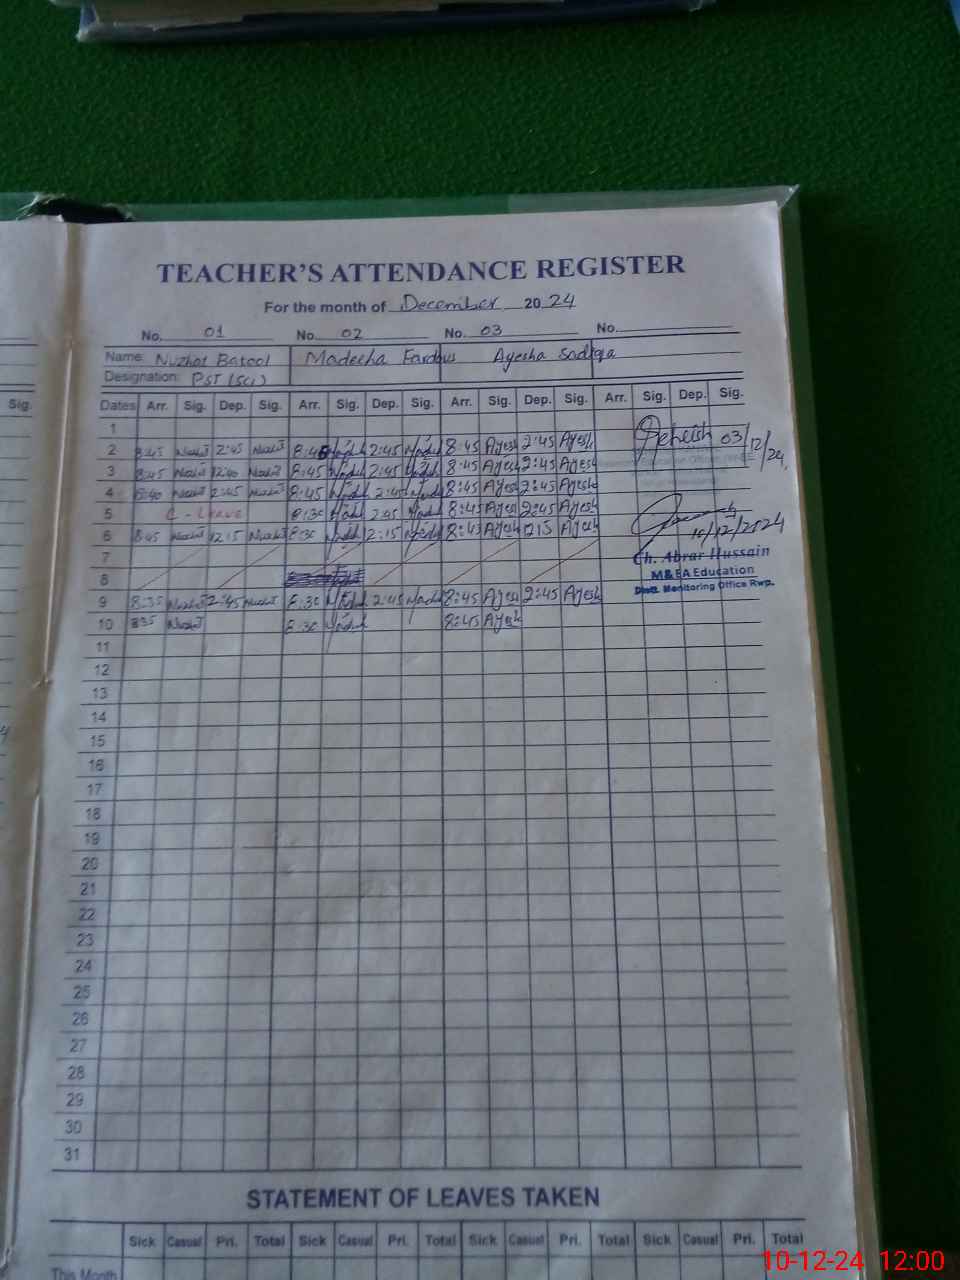 TEACHER'S ATTENDANCE REGISTER
For the month of December 2024
No. 01 No. 02 No. 03 No.
Name: Nuzhat Batool Madeeha Fardous Ayesha Sadiqa
Designation: PST (Sci)
Sig. Dates Arr. Sig. Dep. Sig. Arr. Sig. Dep. Sig. Arr. Sig. Dep. Sig. Arr. Sig. Dep. Sig.
1
2 8:45 Nuzhat 2:45 Nuzhat 8:45 2:45 8:45 Ayesh 2:45 Ayesh 03/12/24
3 8:45 Nuzhat 12:40 Nuzhat 8:45 2:45 8:45 Ayesh 2:45 Ayesh
4 8:40 Nuzhat 2:45 Nuzhat 8:45 2:45 8:45 Ayesh 2:45 Ayesh
5 C - Leave 8:30 2:45 8:45 Ayesh 2:45 Ayesh
6 8:45 Nuzhat 12:15 Nuzhat 8:30 2:15 8:45 Ayesh Ayesh 10/12/2024
7
Ch. Abrar Hussain
8
M&EA Education
Distt. Monitoring Office Rwp.
9 8:35 Nuzhat 2:45 Nuzhat 8:30 2:45 8:45 Ayesh 2:45 Ayesh
10 8:35 Nuzhat 8:30 8:45 Ayesh
11
12
13
14
15
16
17
18
19
20
21
22
23
24
25
26
27
28
29
30
31
STATEMENT OF LEAVES TAKEN
Sick Casual Pri. Total Sick Casual Pri. Total Sick Casual Pri. Total Sick Casual Pri. Total
This Month
10-12-24 12:00